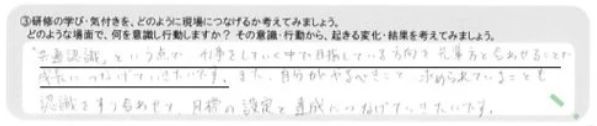 ③研修の学び・気付きを、どのように現場につなげるか考えてみましょう。
どのような場面で、何を意識し行動しますか？その意識・行動から、起きる変化・結果を考えてみましょう。
"共通認識"という点で 仕事をしていく中で目指している方向を 先輩方と合わせることで
成長につなげていきたいです。また、自分がやるべきこと、求められていることも
認識をすり合わせて、目標の設定と達成につなげていきたいです。